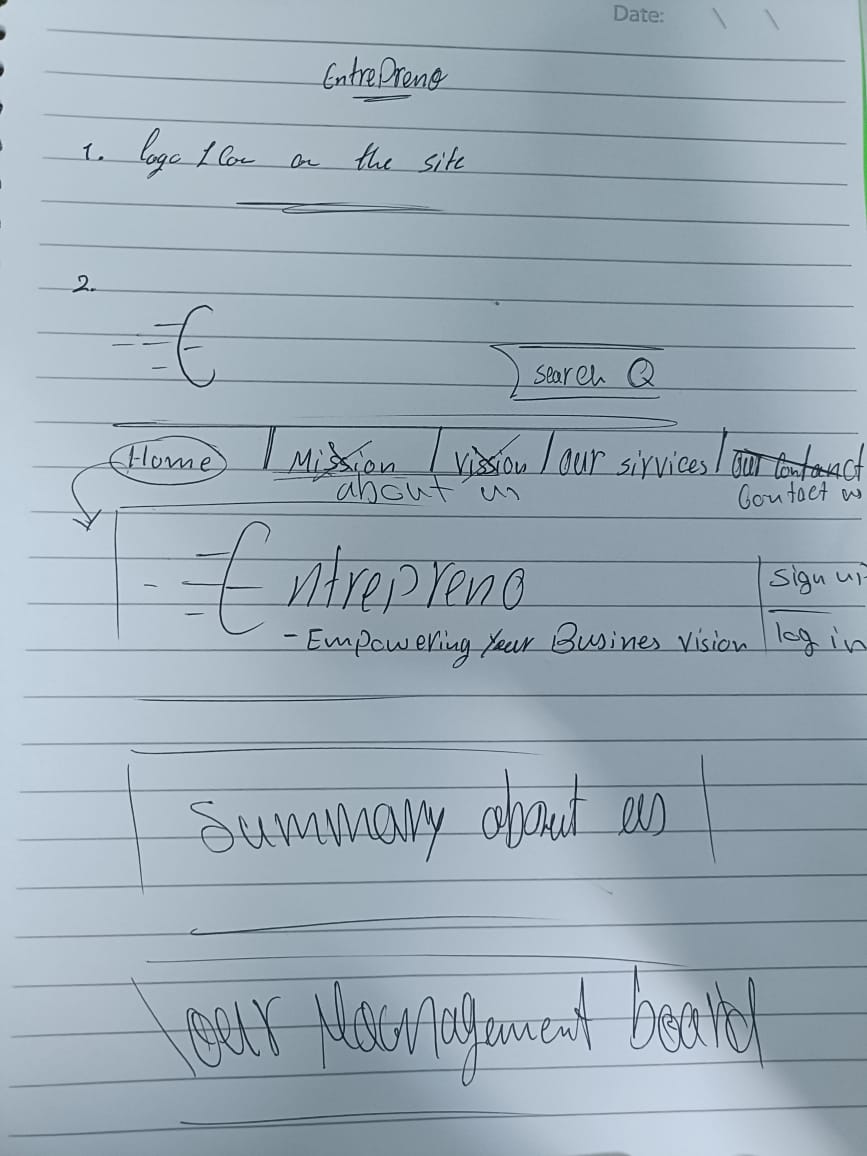 Date:
EntrePreno
1. logo on the site
2.
E
search
Home | Mission | Vission | our sirvices | our Contanct
about us
Contact us
Entrepreno
sign up
- Empowering Your Busines vision
log in
Summary about us
our Management board